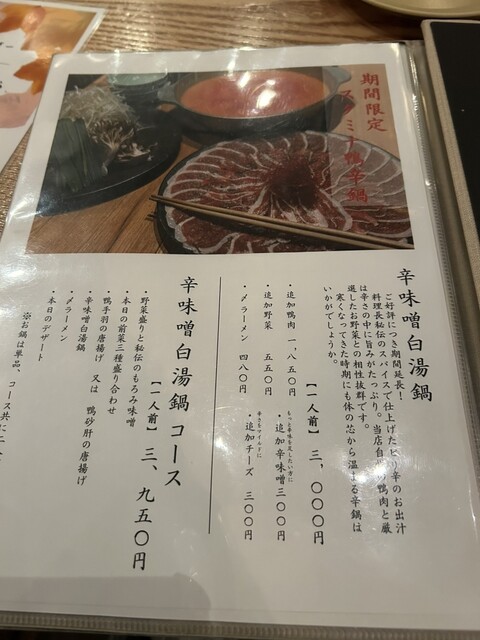 期間限定
鴨辛鍋
辛味噌白湯鍋
ご好評につき期間延長！
料理長秘伝のスパイスで仕上げたピリ辛のお出汁
は辛さの中に旨みがたっぷり。当店自慢の鴨肉と厳
選したお野菜との相性抜群です。
寒くなってきた時期にも体の芯から温まる辛鍋は
いかがでしょうか。
【一人前】 三、〇〇〇円
・追加鴨肉 一、八五〇円
・追加野菜 五五〇円
・〆ラーメン 四八〇円
もっと辛味を足したい方に
・追加辛味噌 三〇〇円
辛さをマイルドに
・追加チーズ 三〇〇円
辛味噌白湯鍋コース
【一人前】 三、九五〇円
・野菜盛りと秘伝のもろみ味噌
・本日の前菜三種盛り合わせ
・鴨手羽の唐揚げ 又は 鴨砂肝の唐揚げ
・辛味噌白湯鍋
・〆ラーメン
・本日のデザート
※お鍋は単品、コース共に二